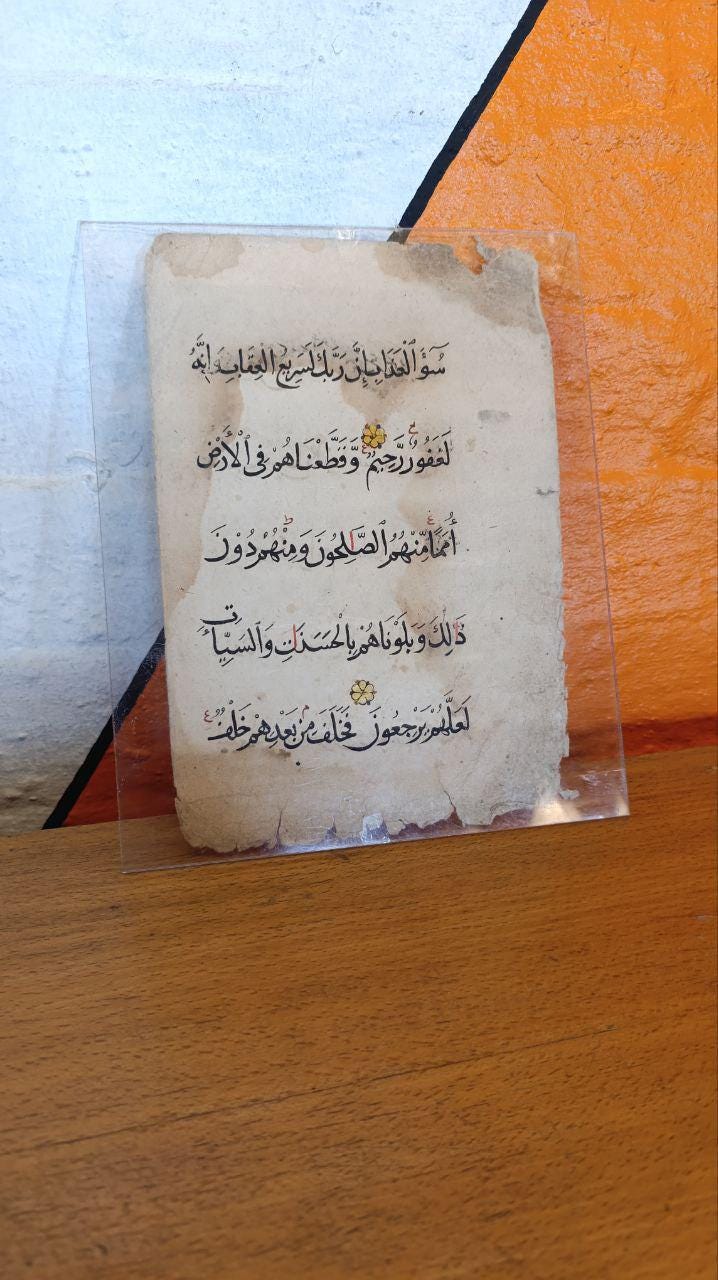 سُوٓءَ ٱلْعَذَابِ إِنَّ رَبَّكَ لَسَرِيعُ العِقَابِ وَإِنَّهُ
لَغَفُورٌ رَّحِيمٌ وَقَطَّعْنَاهُمْ فِى ٱلْأَرْضِ
أُمَمًا مِّنْهُمُ ٱلصَّـٰلِحُونَ وَمِنْهُمْ دُوْنَ
ذَٰلِكَ وَبَلَوْنَاهُمْ بِالْحَسَنَاتِ وَٱلسَّيِّاٰتِ
لَعَلَّهُمْ يَرْجِعُونَ فَخَلَفَ مِنْ بَعْدِهِمْ خَلْفٌ